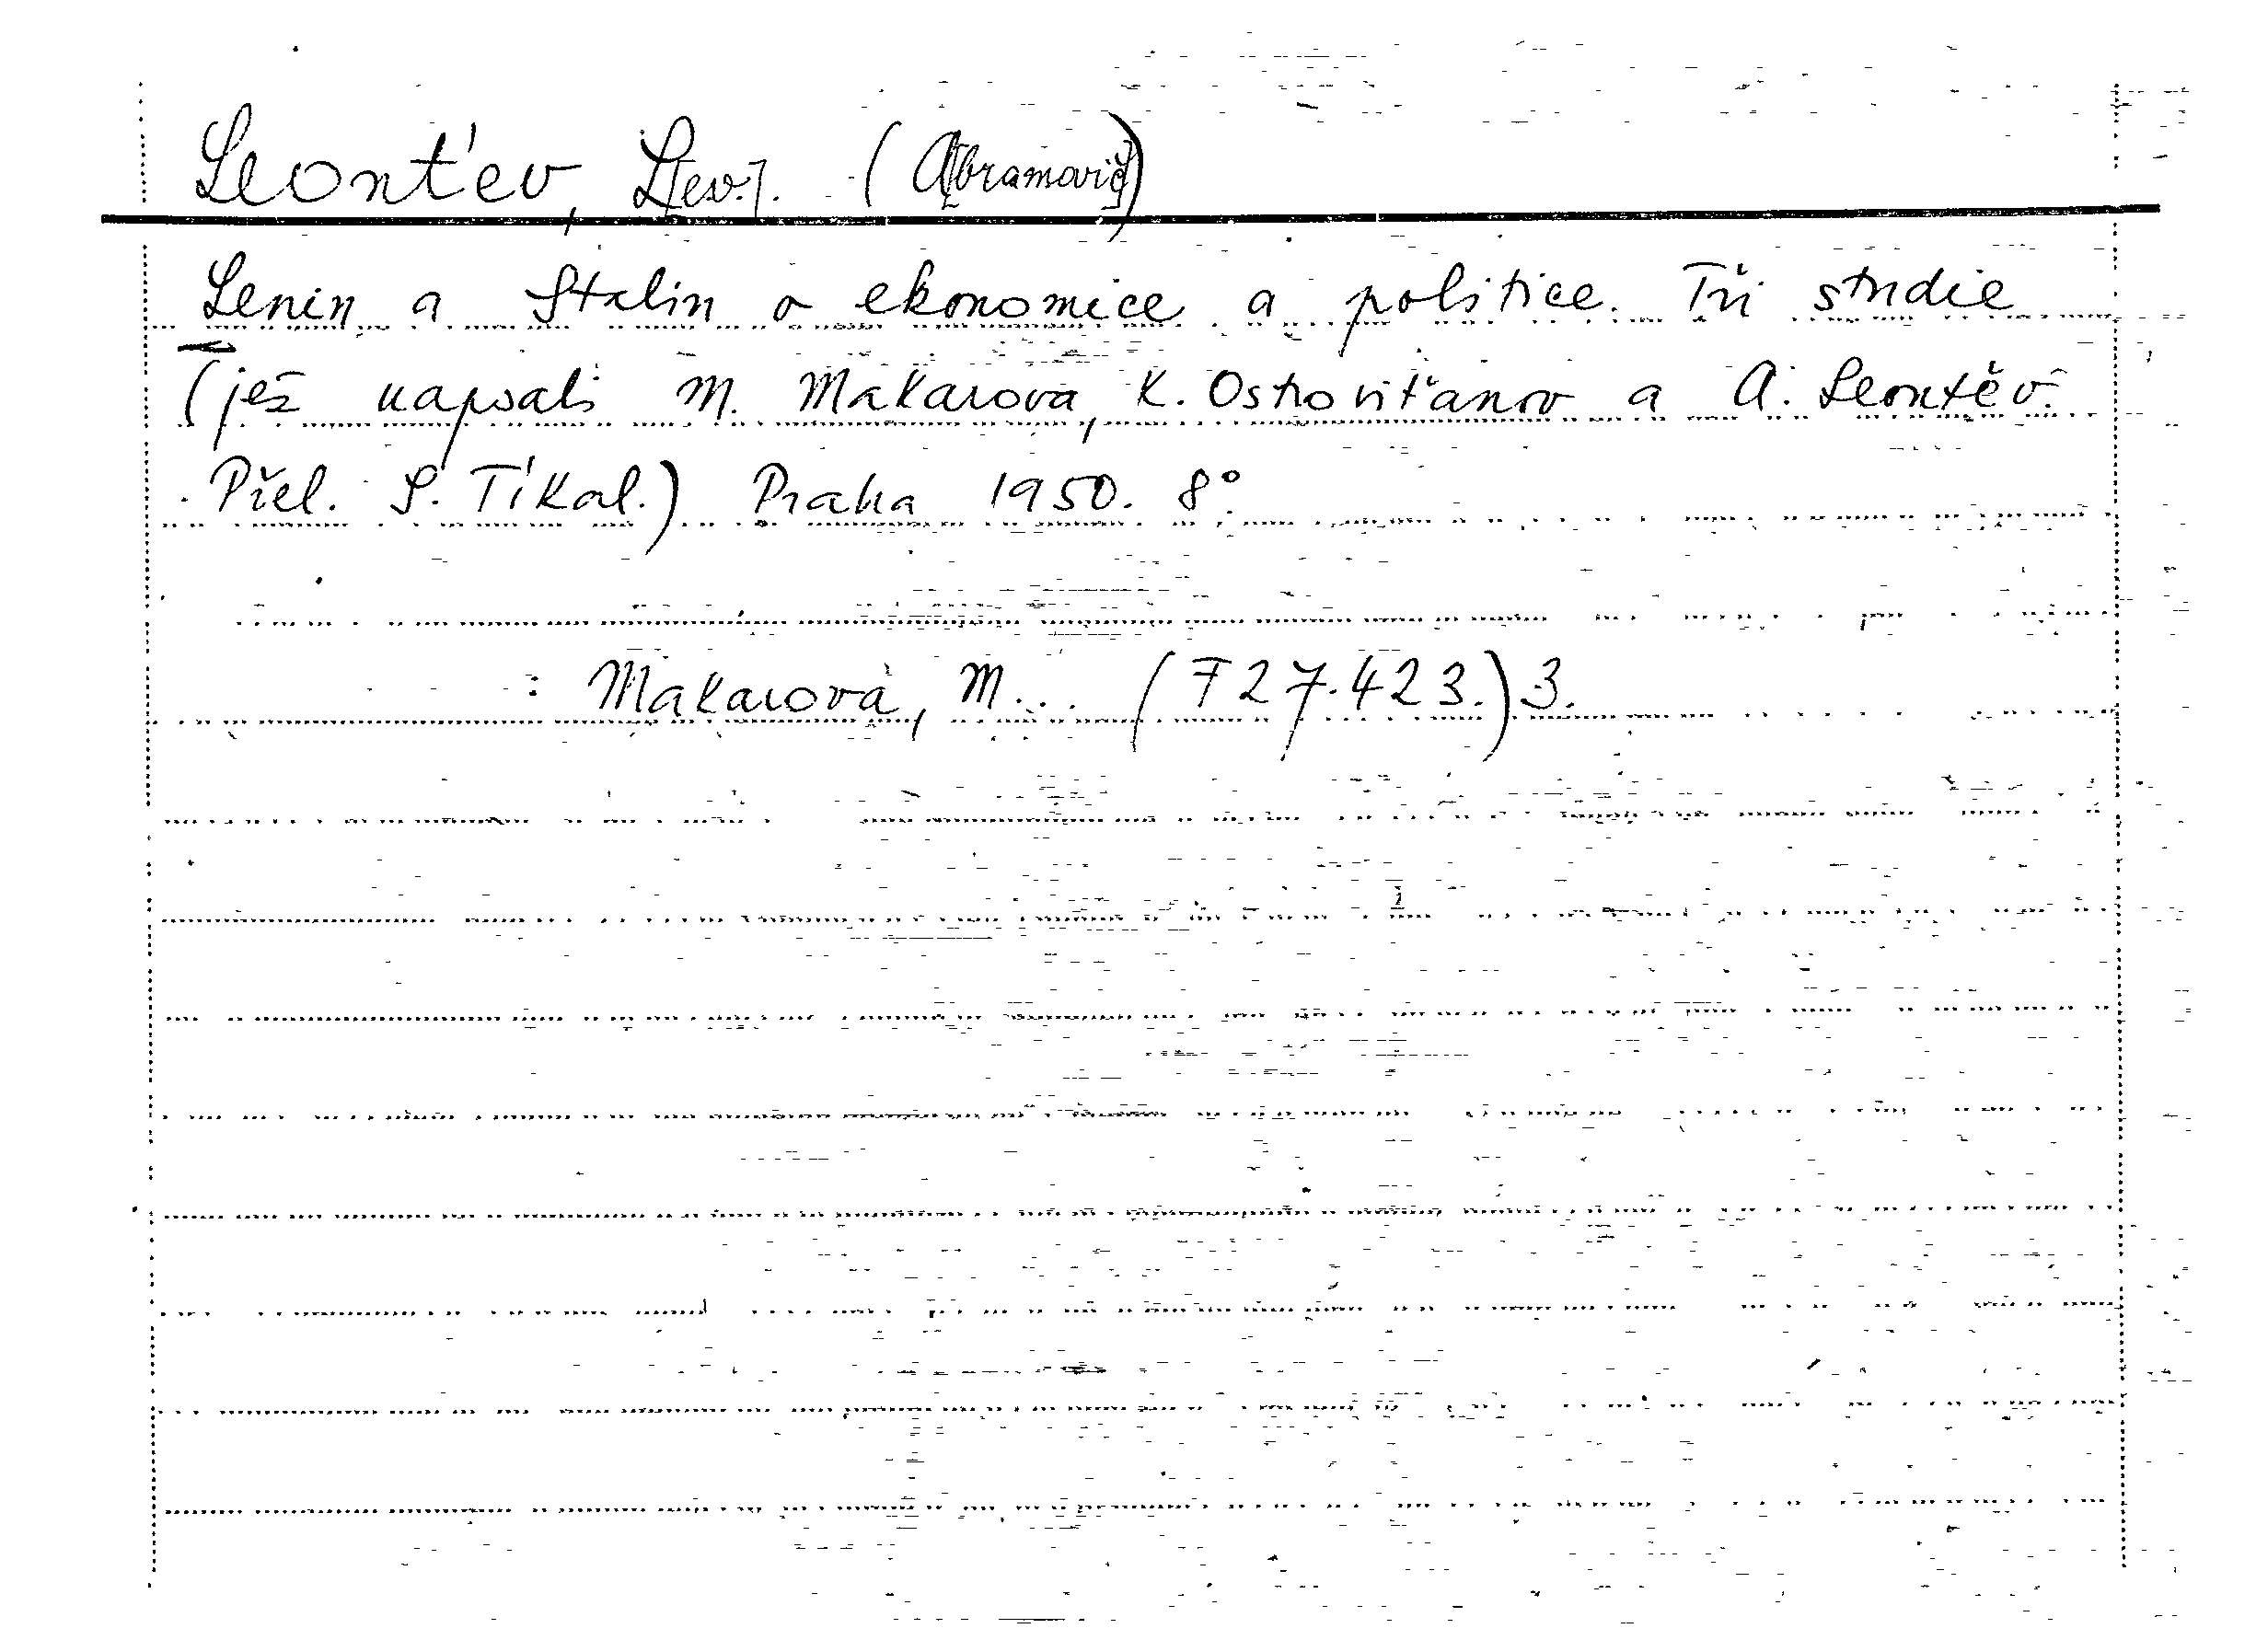 Leonťev, L[ev]. (A[bramovič])
Lenin a Stalin o ekonomice a politice. Tři studie
(jež napsali M. Makarova, K. Ostroviťanov a A. Leontěv.
Přel. S. Tíkal.) Praha 1950. 8°.
: Makarová, M... (F27.423.)3.